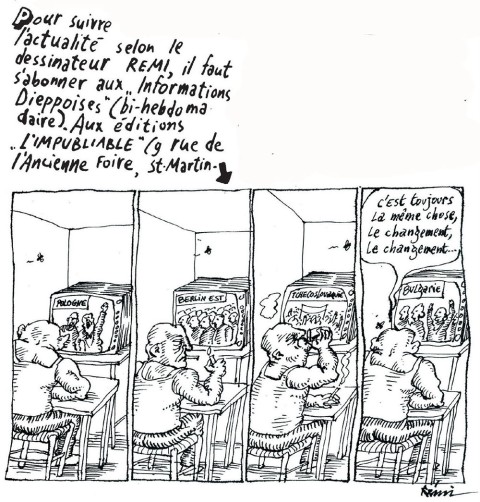 Pour suivre
l'actualité selon le
dessinateur REMI, il faut
s'abonner aux „Informations
Dieppoises" (bi-hebdoma
daire). Aux éditions
„L'IMPUBLIABLE" (9 rue de
l'Ancienne Foire, St-Martin-
POLOGNE
BERLIN EST
TCHECOSLOVAQUIE
c'est toujours
la même chose,
le changement,
le changement...
Bulgarie
Rémi